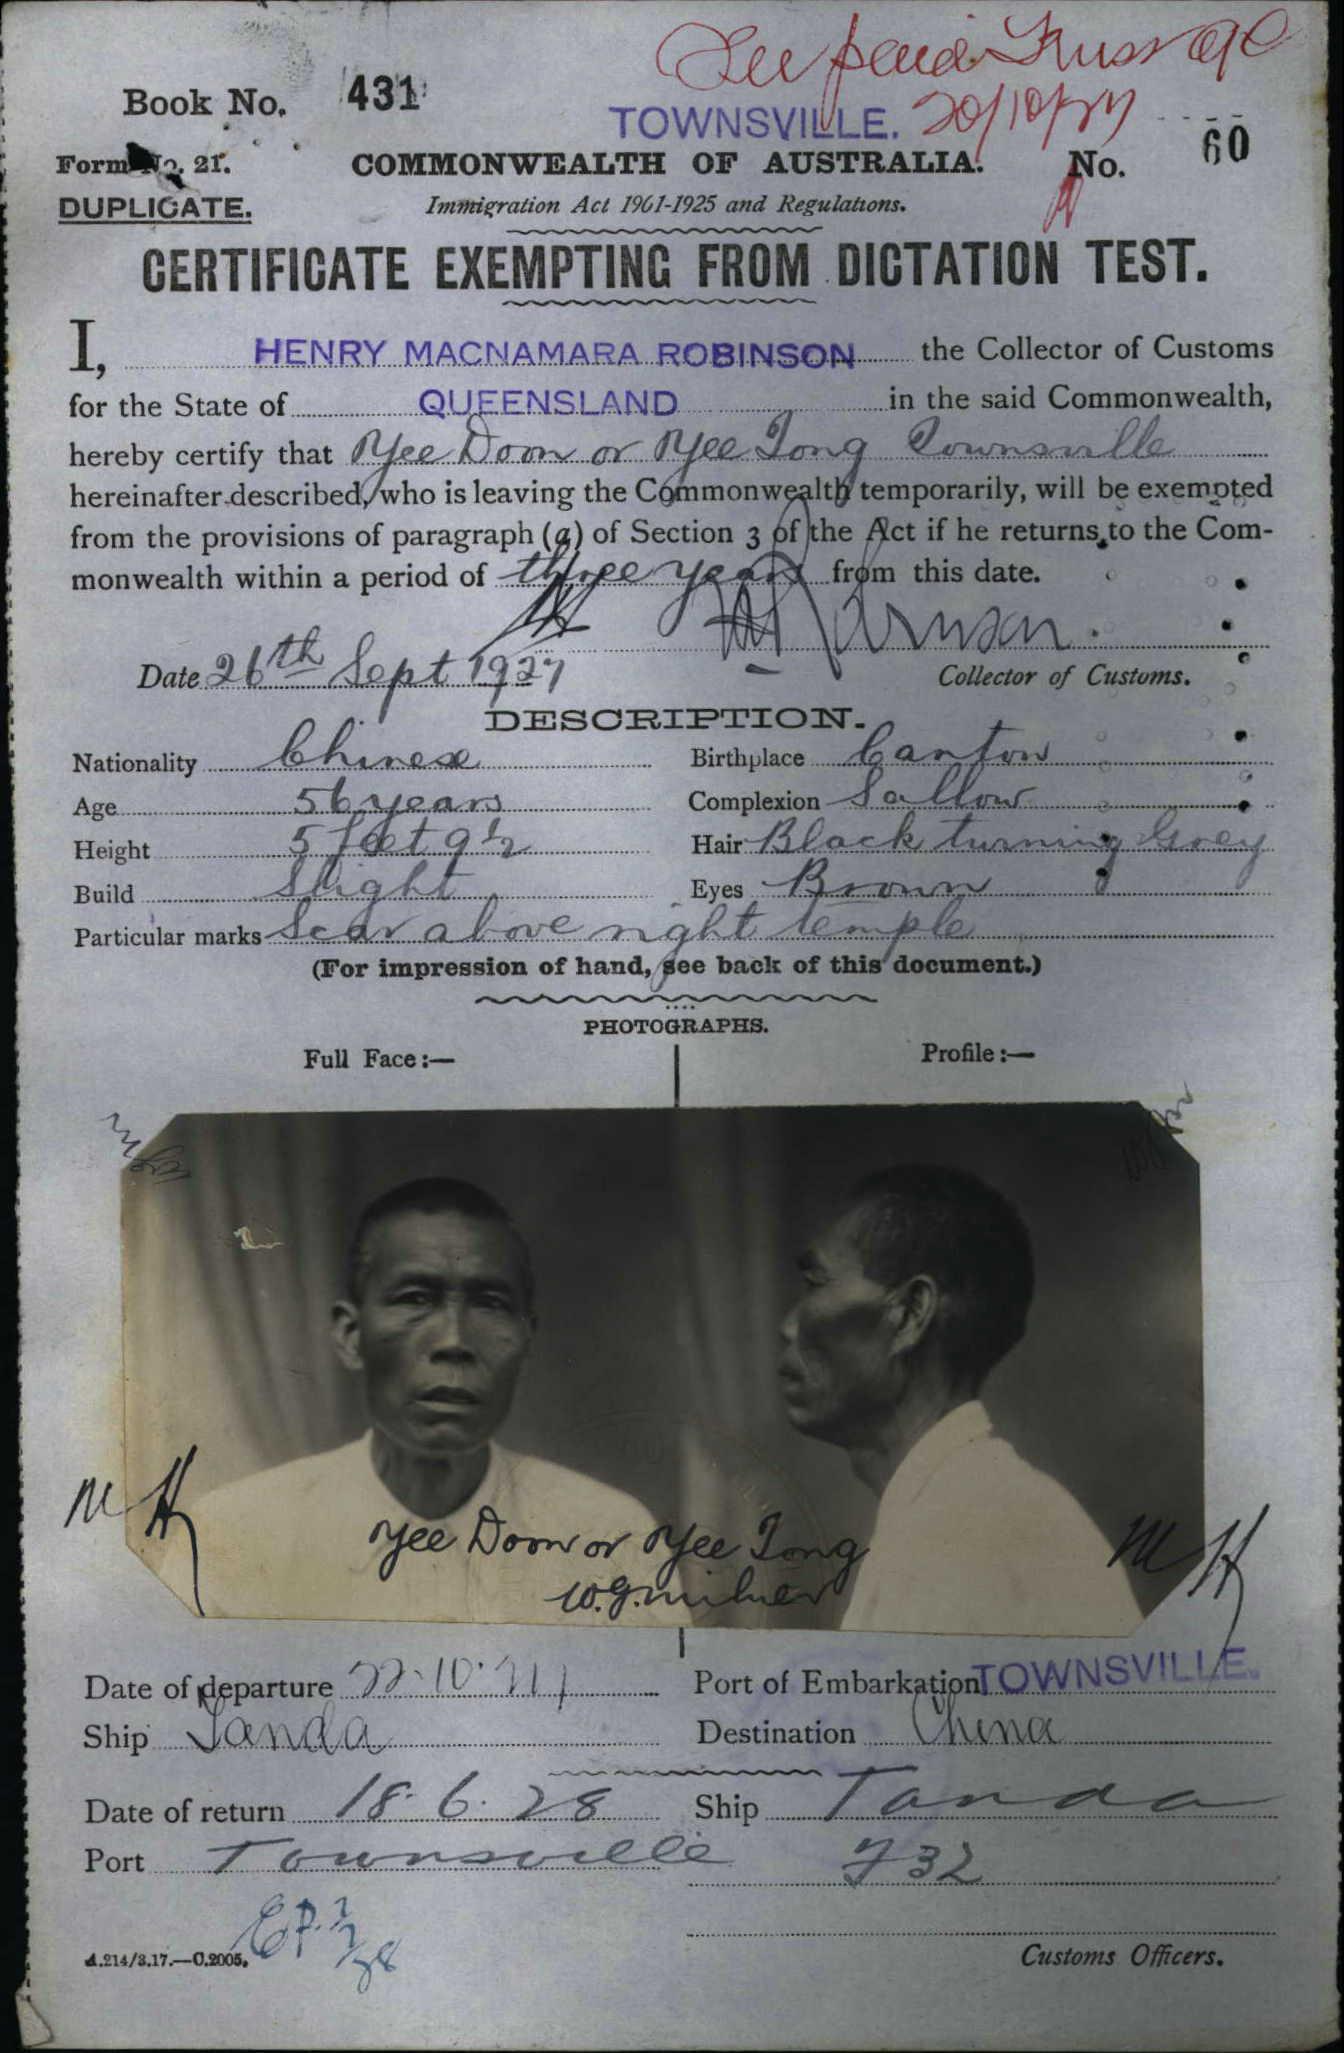 Fee paid
Book No. 431
TOWNSVILLE. 20/10/27
Form No. 21. COMMONWEALTH OF AUSTRALIA. No. 60
DUPLICATE. Immigration Act 1901-1925 and Regulations.
CERTIFICATE EXEMPTING FROM DICTATION TEST.
I, HENRY MACNAMARA ROBINSON the Collector of Customs
for the State of QUEENSLAND in the said Commonwealth,
hereby certify that Yee Doon or Yee Tong Townsville
hereinafter described, who is leaving the Commonwealth temporarily, will be exempted
from the provisions of paragraph (a) of Section 3 of the Act if he returns to the Com-
monwealth within a period of three years from this date.
Date 26th Sept 1927 Collector of Customs.
DESCRIPTION.
Nationality Chinese Birthplace Canton
Age 56 years Complexion Sallow
Height 5 feet 9½ Hair Black turning Grey
Build Slight Eyes Brown
Particular marks Scar above right temple
(For impression of hand, see back of this document.)
PHOTOGRAPHS.
Full Face:— Profile:—
Yee Doon or Yee Tong
W.G. Milner
Date of departure 22.10.27 Port of Embarkation TOWNSVILLE.
Ship Tanda Destination China
Date of return 18.6.28 Ship Tanda
Port Townsville 732
A.214/3.17.—C.2005. Customs Officers.